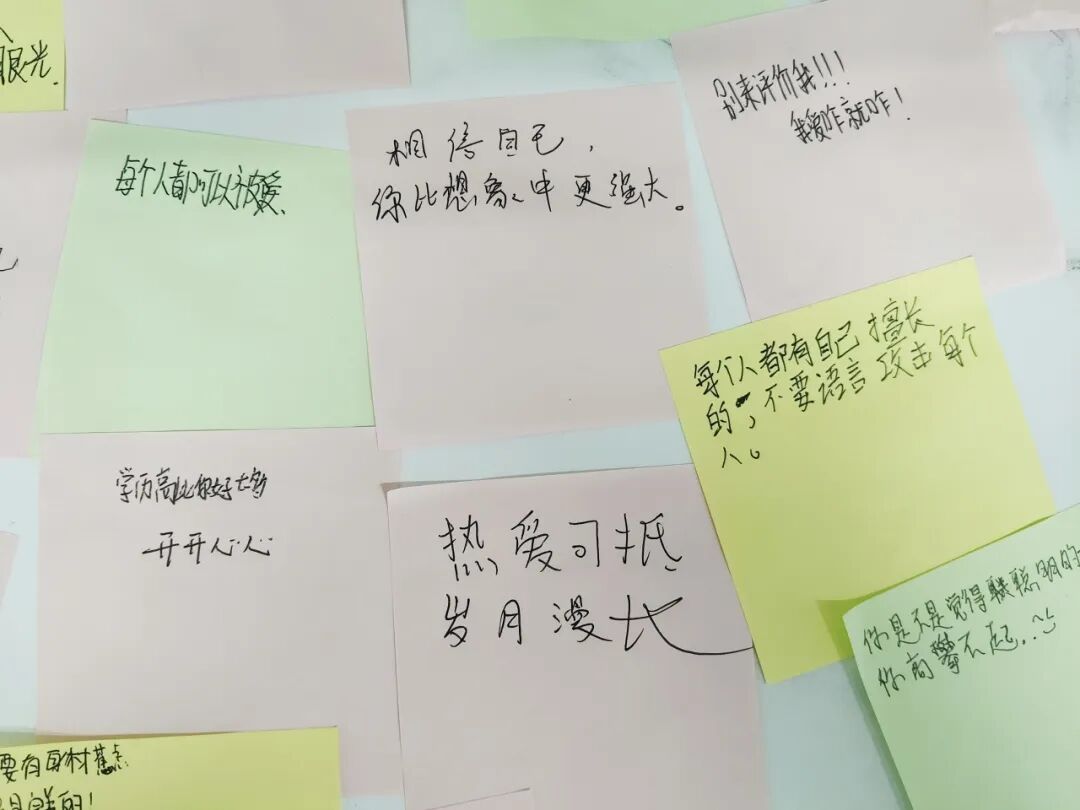 眼光.
每个人都可以被爱.
相信自己,
你比想象中更强大。
别来评价我!!!
我爱咋就咋!
每个人都有自己擅长
的,不要语言攻击每个
人。
学历高比你好
开开心心
热爱可抵
岁月漫长
你是不是觉得聪明的
你高攀不起.
要有身材焦点
的!